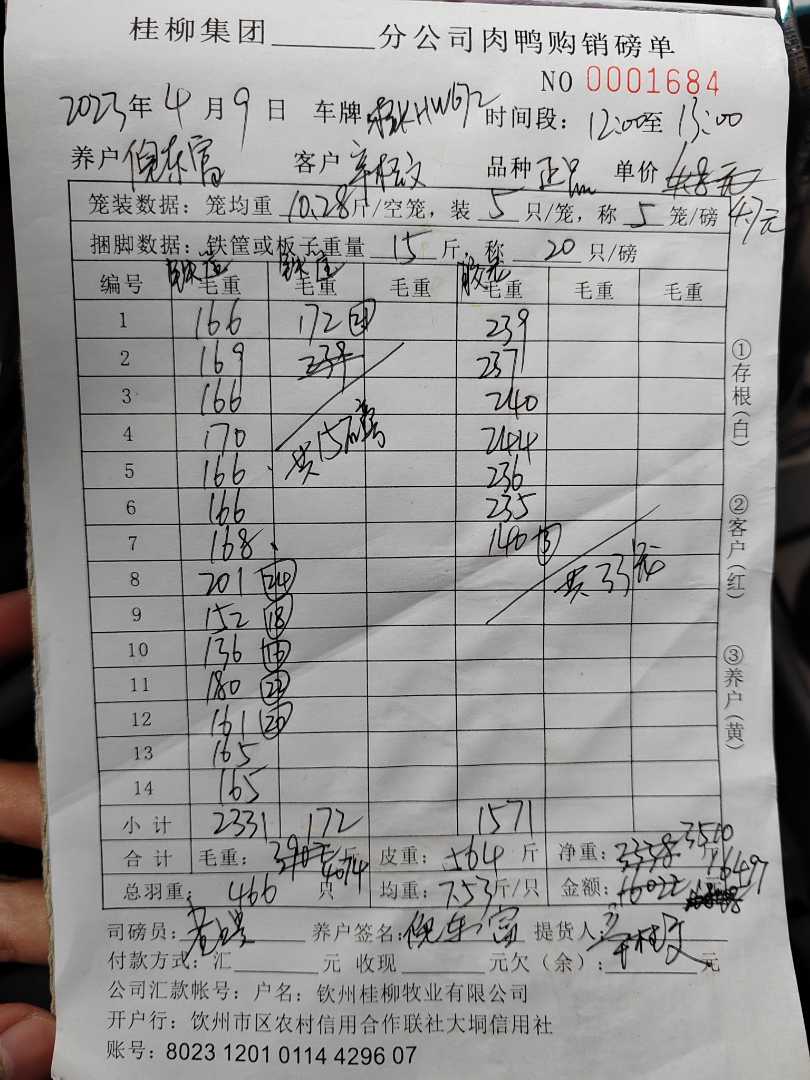 桂柳集团______分公司肉鸭购销磅单
NO 0001684
2023年4月9日 车牌 HW672 时间段：12:00至13:00
养户 倪东富 客户 品种 正品 单价 4.8元
笼装数据：笼均重 10.28斤/空笼，装 5 只/笼，称 5 笼/磅 4.7元
捆脚数据：铁筐或板子重量 15 斤，称 20 只/磅
铁筐 铁筐 胶笼
编号 毛重 毛重 毛重 毛重 毛重 毛重
1 166 172 21 239
2 169 239 237
3 166 240
4 170 共15磅 244
5 166 236
6 166 235
7 168 140
8 201 24 共33笼
9 152 18
10 136
11 180 22
12 161 20
13 165
14 165
小计 2331 172 1571
合计 毛重： 4074 斤 皮重：564 斤 净重：3338 3510
总羽重：466 只 均重：7.53斤/只 金额：16022 16497
司磅员： 养户签名：倪东富 提货人：
付款方式：汇______元 收现______元欠（余）：______元
公司汇款帐号：户名：钦州桂柳牧业有限公司
开户行：钦州市区农村信用合作联社大垌信用社
账号：8023 1201 0114 4296 07
①存根(白)
②客户(红)
③养户(黄)